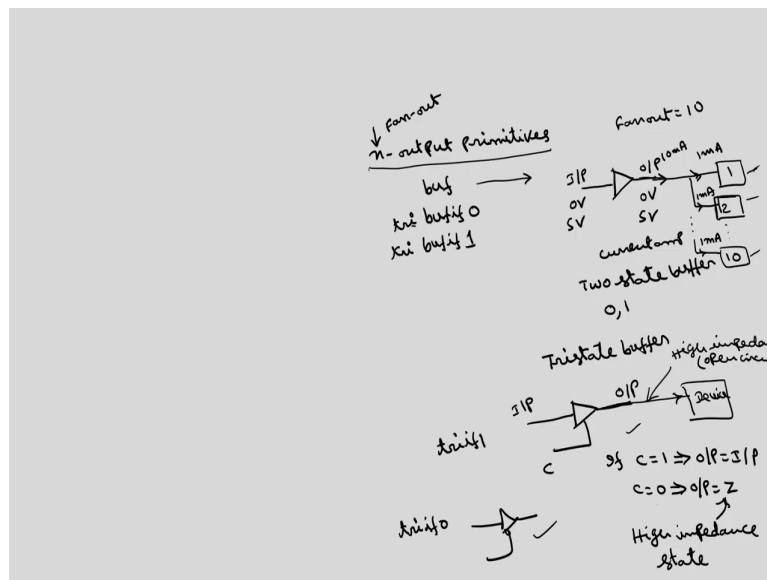 Fan-out
n-output primitives
buf
tri bufif 0
tri bufif 1
Fanout = 10
I/P
0V
5V
O/P
0V
5V
10mA
1mA
1
1mA
2
1mA
10
current amp
Two state buffer
0, 1
Tristate buffer
High impeda
(open circu
I/P
O/P
Device
C
triif1
If C=1 ⇒ O/P = I/P
C=0 ⇒ O/P = Z
High impedance
state
triif0